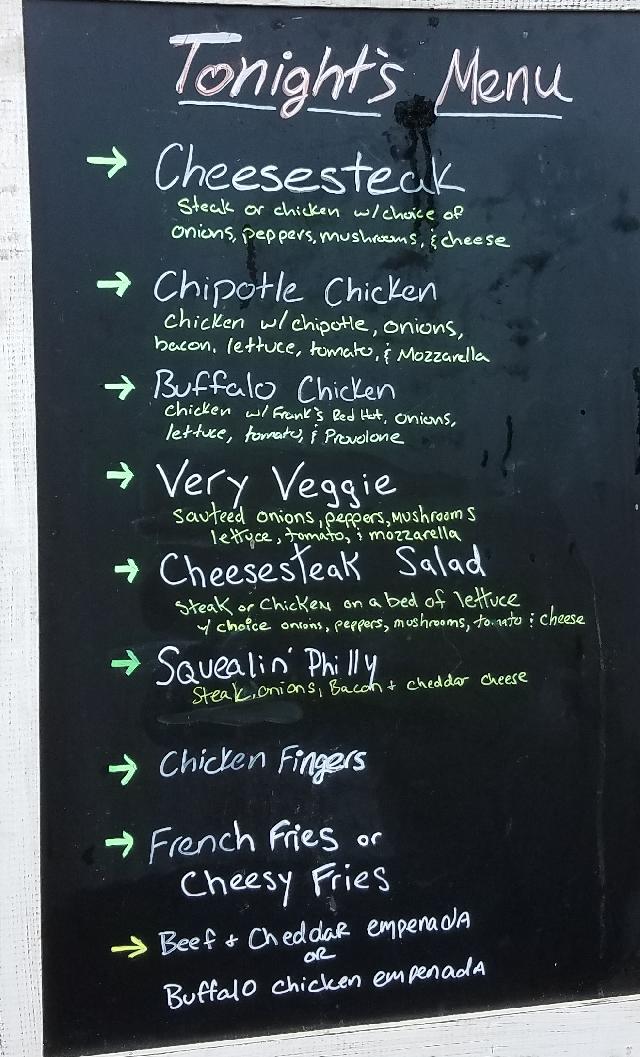 Tonight's Menu
→ Cheesesteak
Steak or chicken w/choice of
onions, peppers, mushrooms, & cheese
→ Chipotle Chicken
Chicken w/chipotle, onions,
bacon, lettuce, tomato, & Mozzarella
→ Buffalo Chicken
Chicken w/Frank's Red Hot, onions,
lettuce, tomato, & Provolone
→ Very Veggie
Sauteed onions, peppers, Mushrooms
lettuce, tomato, & mozzarella
→ Cheesesteak Salad
Steak or Chicken on a bed of lettuce
w/ choice onions, peppers, mushrooms, tomato & cheese
→ Squealin' Philly
Steak, onions, Bacon + cheddar cheese
→ Chicken Fingers
→ French Fries or
Cheesy Fries
→ Beef + Cheddar empenada
OR
Buffalo chicken empenada